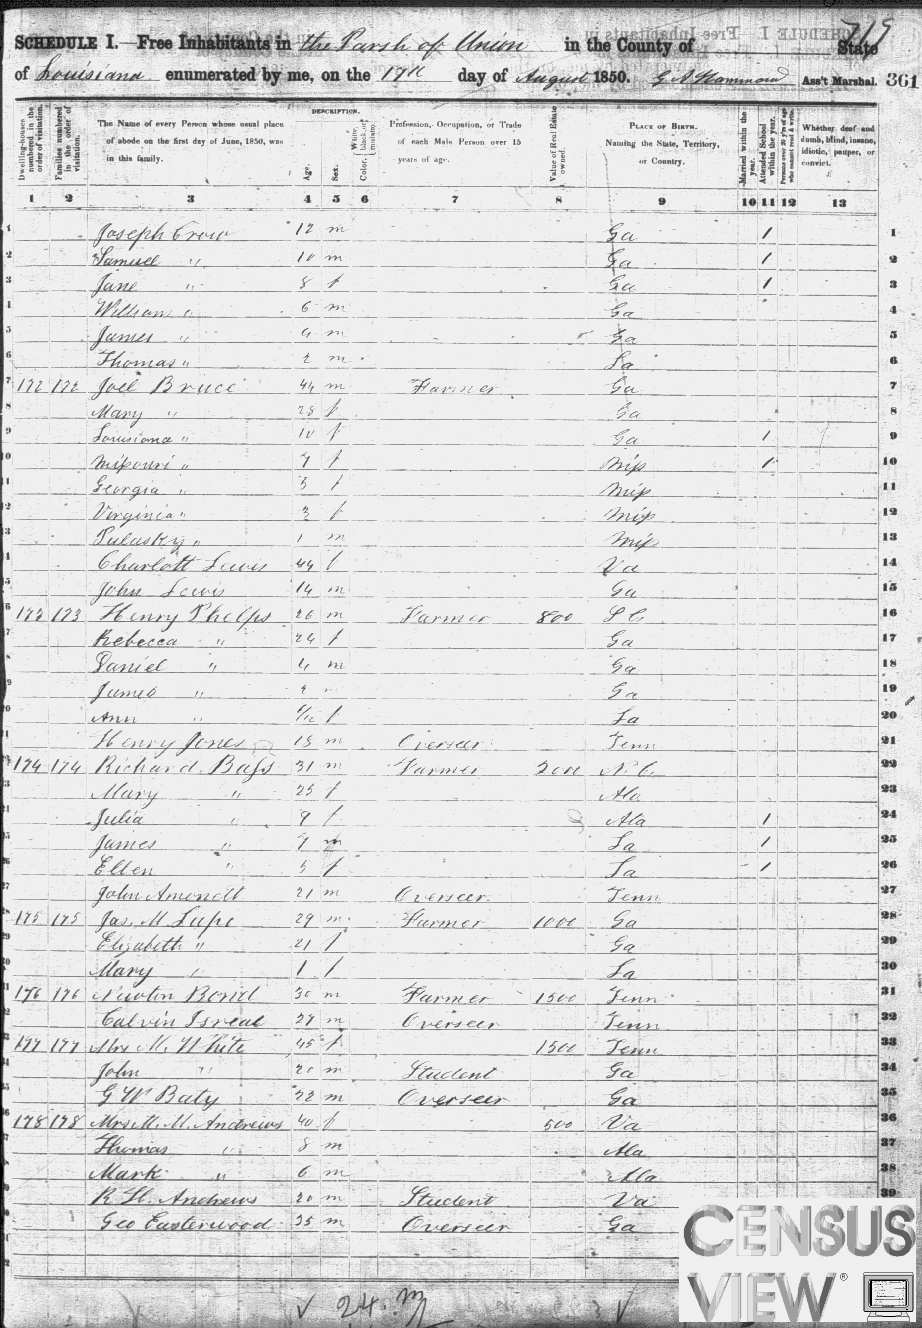 719
SCHEDULE I.—Free Inhabitants in the Parsh of Union in the County of State
of Louisiana enumerated by me, on the 17th day of August 1850. Ass't Marshal. 361
Dwelling-houses numbered in the order of visitation.
Families numbered in the order of visitation.
The Name of every Person whose usual place of abode on the first day of June, 1850, was in this family.
DESCRIPTION.
Age.
Sex.
Color, White, black, or mulatto.
Profession, Occupation, or Trade of each Male Person over 15 years of age.
Value of Real Estate owned.
PLACE OF BIRTH.
Naming the State, Territory, or Country.
Married within the year.
Attended School within the year.
Persons over 20 y'rs of age who cannot read & write.
Whether deaf and dumb, blind, insane, idiotic, pauper, or convict.
1 2 3 4 5 6 7 8 9 10 11 12 13
1 Joseph Crow 12 m Ga 1 1
2 Samuel " 10 m Ga 1 2
3 Jane " 8 f Ga 1 3
4 William " 6 m Ga 4
5 James " 4 m Ga 5
6 Thomas " 2 m La 6
7 172 172 Joel Bruce 44 m Farmer Ga 7
8 Mary " 28 f Ga 8
9 Louisiana " 10 f Ga 1 9
10 Missouri " 7 f Miss 1 10
11 Georgia " 5 f Miss 11
12 Virginia " f Miss 12
13 Pulasky " 1 m Miss 13
14 Charlott Lewis 44 f Va 14
15 John Lewis 14 m Ga 15
16 173 173 Henry Phelps 26 m Farmer 800 S C 16
17 Rebecca " 24 f Ga 17
18 Daniel " 4 m Ga 18
19 James " 2 m Ga 19
20 Ann " /12 f La 20
21 Henry Jones 18 m Overseer Tenn 21
22 174 174 Richard Bass 31 m Farmer 2000 N. C. 22
23 Mary " 25 f Ala 23
24 Julia " 9 f Ala 1 24
25 James " 7 m La 1 25
26 Ellen " 5 f La 1 26
27 John Amendt 21 m Overseer Tenn 27
28 175 175 Jas. M. Lupo 29 m Farmer 1000 Ga 28
29 Elizabeth " 21 f Ga 29
30 Mary " 1 f La 30
31 176 176 Newton Bond 30 m Farmer 1500 Tenn 31
32 Calvin Isreal 27 m Overseer Tenn 32
33 177 177 Mrs M. White 45 f 1500 Tenn 33
34 John " 20 m Student Ga 34
35 G W Baty 22 m Overseer Ga 35
36 178 178 Mrs. M. M. Andrews 40 f 500 Va 36
37 Thomas " 8 m Ala 37
38 Mark " 6 m Ala 38
39 R. H. Andrews 20 m Student Va 39
Geo Easterwood 35 m Overseer Ga
24 m
CENSUS
VIEW®